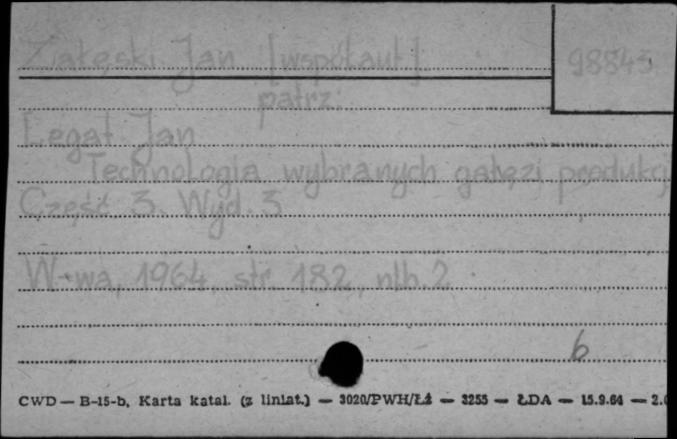 Załęski Jan [współaut] 98843
patrz:
Legat Jan
Technologia wybranych gałęzi produkcji
Część 3. Wyd. 3
W-wa, 1964, str. 182, nlb. 2
6
CWD — B-15-b, Karta katal. (z liniat.) — 3020/PWH/Łź — 3255 — ŁDA — 15.9.64 — 2.0